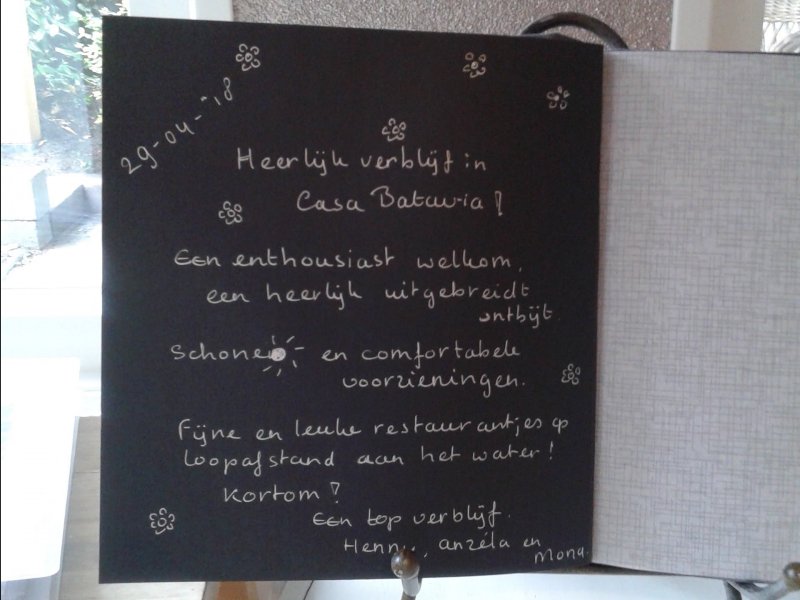 29-04-'18
Heerlijk verblijf in
Casa Batavia!
Een enthousiast welkom,
een heerlijk uitgebreidt
ontbijt.
Schone en comfortabele
voorzieningen.
Fijne en leuke restaurantjes op
loopafstand aan het water!
Kortom!
Een top verblijf.
anzéla en
Mona.